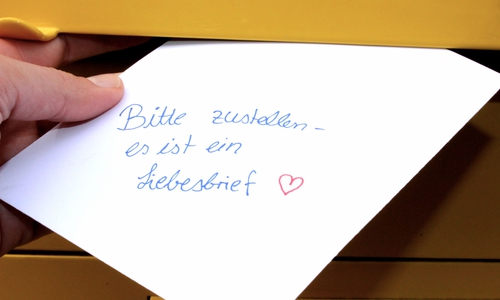 Bitte zustellen –
es ist ein
Liebesbrief ♡